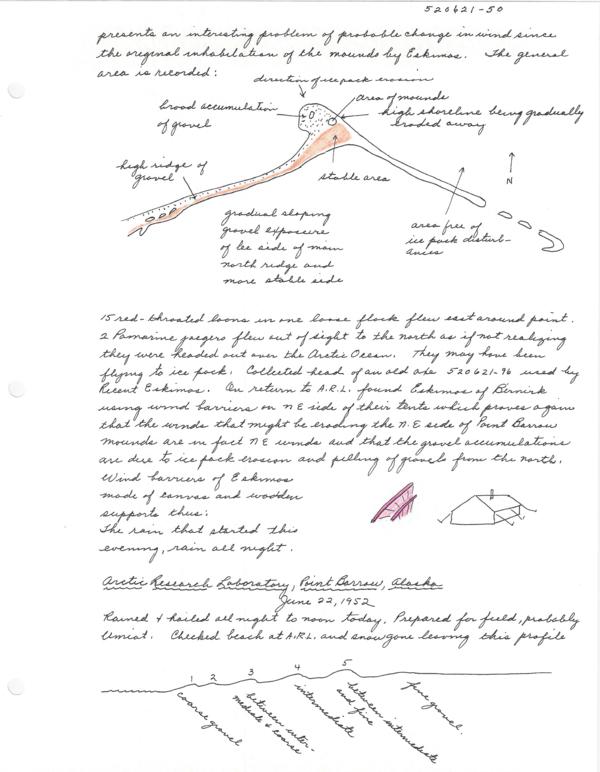 520621-50
presents an interesting problem of probable change in wind since
the original inhabitation of the mounds by Eskimos. The general
area is recorded:
direction of ice pack erosion
area of mounds
broad accumulation
of gravel
high shoreline being gradually
eroded away
high ridge of
gravel
stable area
N
gradual sloping
gravel exposure
of lee side of main
north ridge and
more stable side
area free of
ice pack disturb-
ances
15 red-throated loons in one loose flock flew east around point.
2 Pomarine jaegers flew out of sight to the north as if not realizing
they were headed out over the Arctic Ocean. They may have been
flying to ice pack. Collected head of an old axe 520621-96 used by
Recent Eskimos. On return to A.R.L. found Eskimos of Birnirk
using wind barriers on NE side of their tents which proves again
that the winds that might be eroding the N.E side of Point Barrow
mounds are in fact NE winds and that the gravel accumulations
are due to ice pack erosion and pilling of gravels from the north.
Wind barriers of Eskimos
made of canvas and wooden
supports thus:
The rain that started this
evening, rain all night.
Arctic Research Laboratory, Point Barrow, Alaska
June 22, 1952
Rained & hailed all night to noon today. Prepared for field, probably
Umiat. Checked beach at A.R.L. and snow gone leaving this profile
1 2 3 4 5
coarse gravel
between inter-
mediate & coarse
intermediate
between intermediate
and fine
fine gravel.